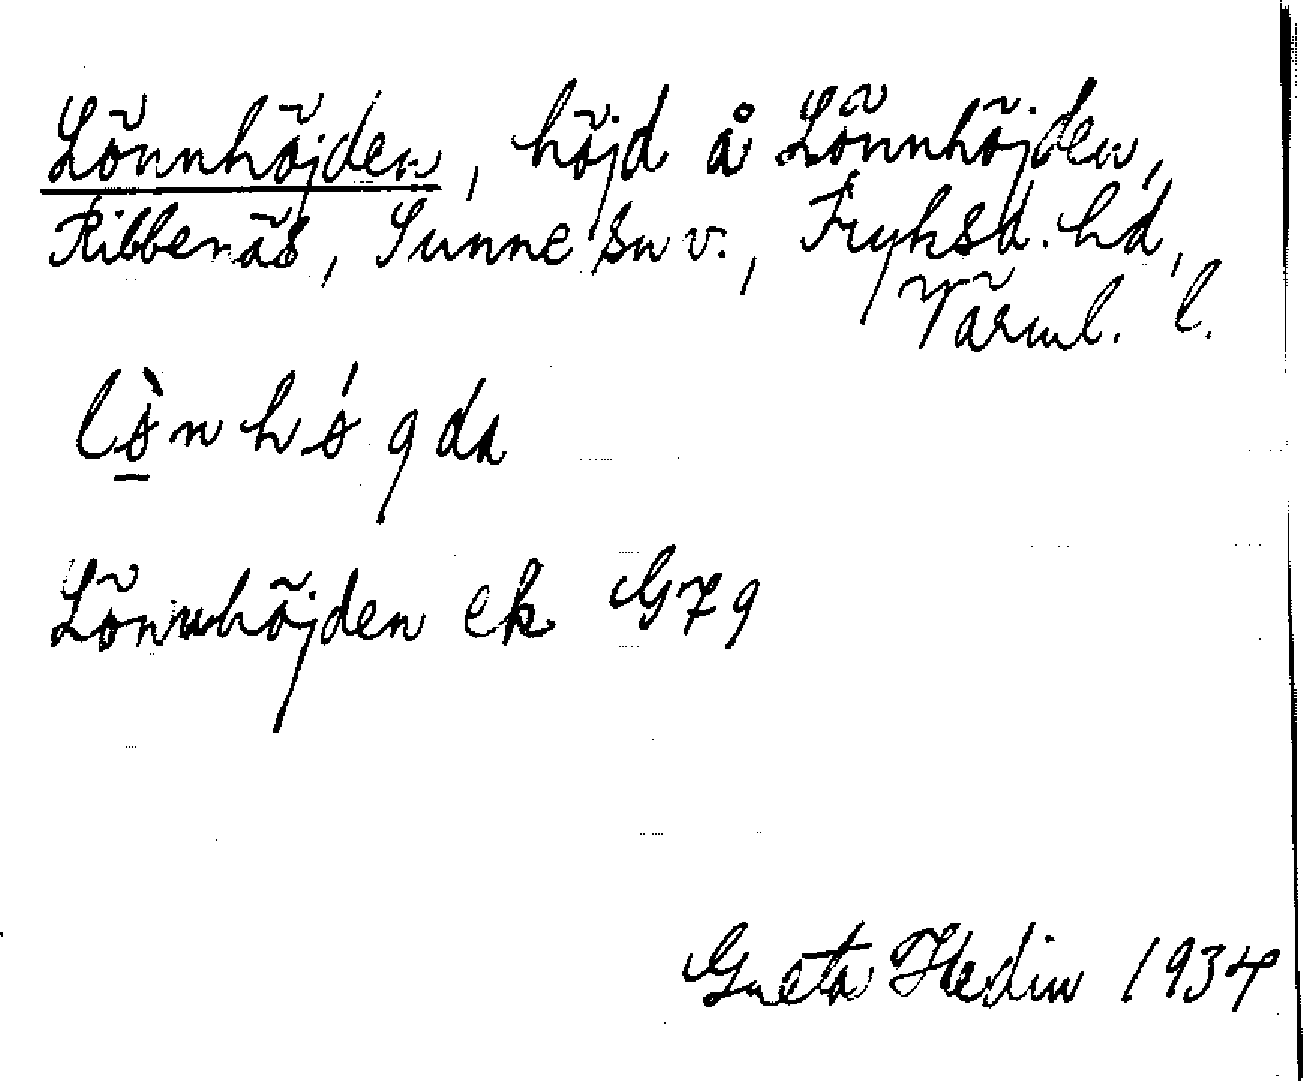 Lönnhöjden, höjd å Lönnhöjden,
Ribbenäs, Sunne sn v., Fryksd. hd,
Värml. l.
lø̱̀nhǿgda
Lönnhöjden ek G79
Greta Hedin 1934